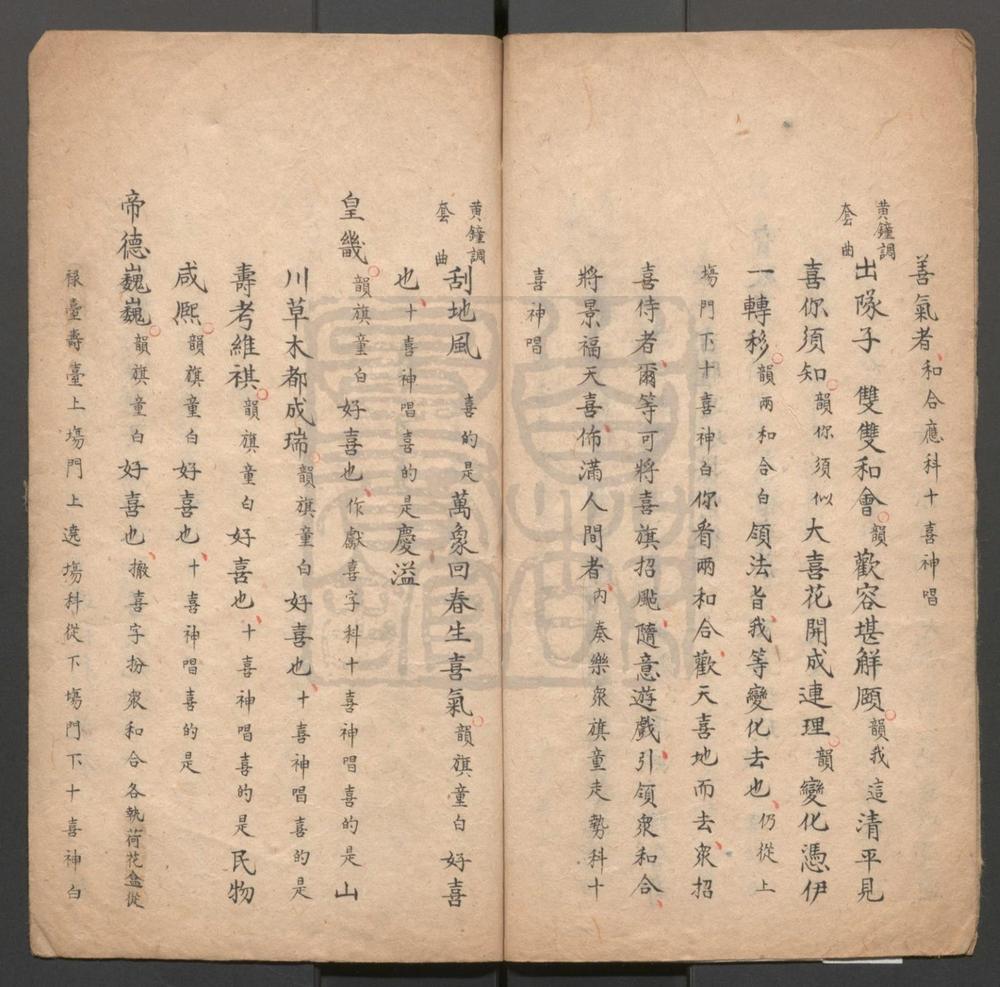 善氣者和合應科十喜神唱
黃鐘調
套曲
出隊子 雙雙和會韻歡容堪解頤韻我這清平見
喜你須知韻你須似大喜花開成連理韻變化憑伊
一轉移韻兩和合白領法旨我等變化去也仍從上
塲門下十喜神白你看兩和合歡天喜地而去衆招
喜侍者爾等可將喜旗招颭隨意遊戲引領衆和合
將景福天喜佈滿人間者內奏樂衆旗童走勢科十
喜神唱
黃鐘調
套曲
刮地風 喜的是萬象回春生喜氣韻旗童白好喜
也十喜神唱喜的是慶溢
皇畿韻旗童白好喜也作獻喜字科十喜神唱喜的是山
川草木都成瑞韻旗童白好喜也十喜神唱喜的是
壽考維祺韻旗童白好喜也十喜神唱喜的是民物
咸熈韻旗童白好喜也十喜神唱喜的是
帝德巍巍韻旗童白好喜也撤喜字扮衆和合各執荷花盒從
祿臺壽臺上塲門上遶塲科從下塲門下十喜神白